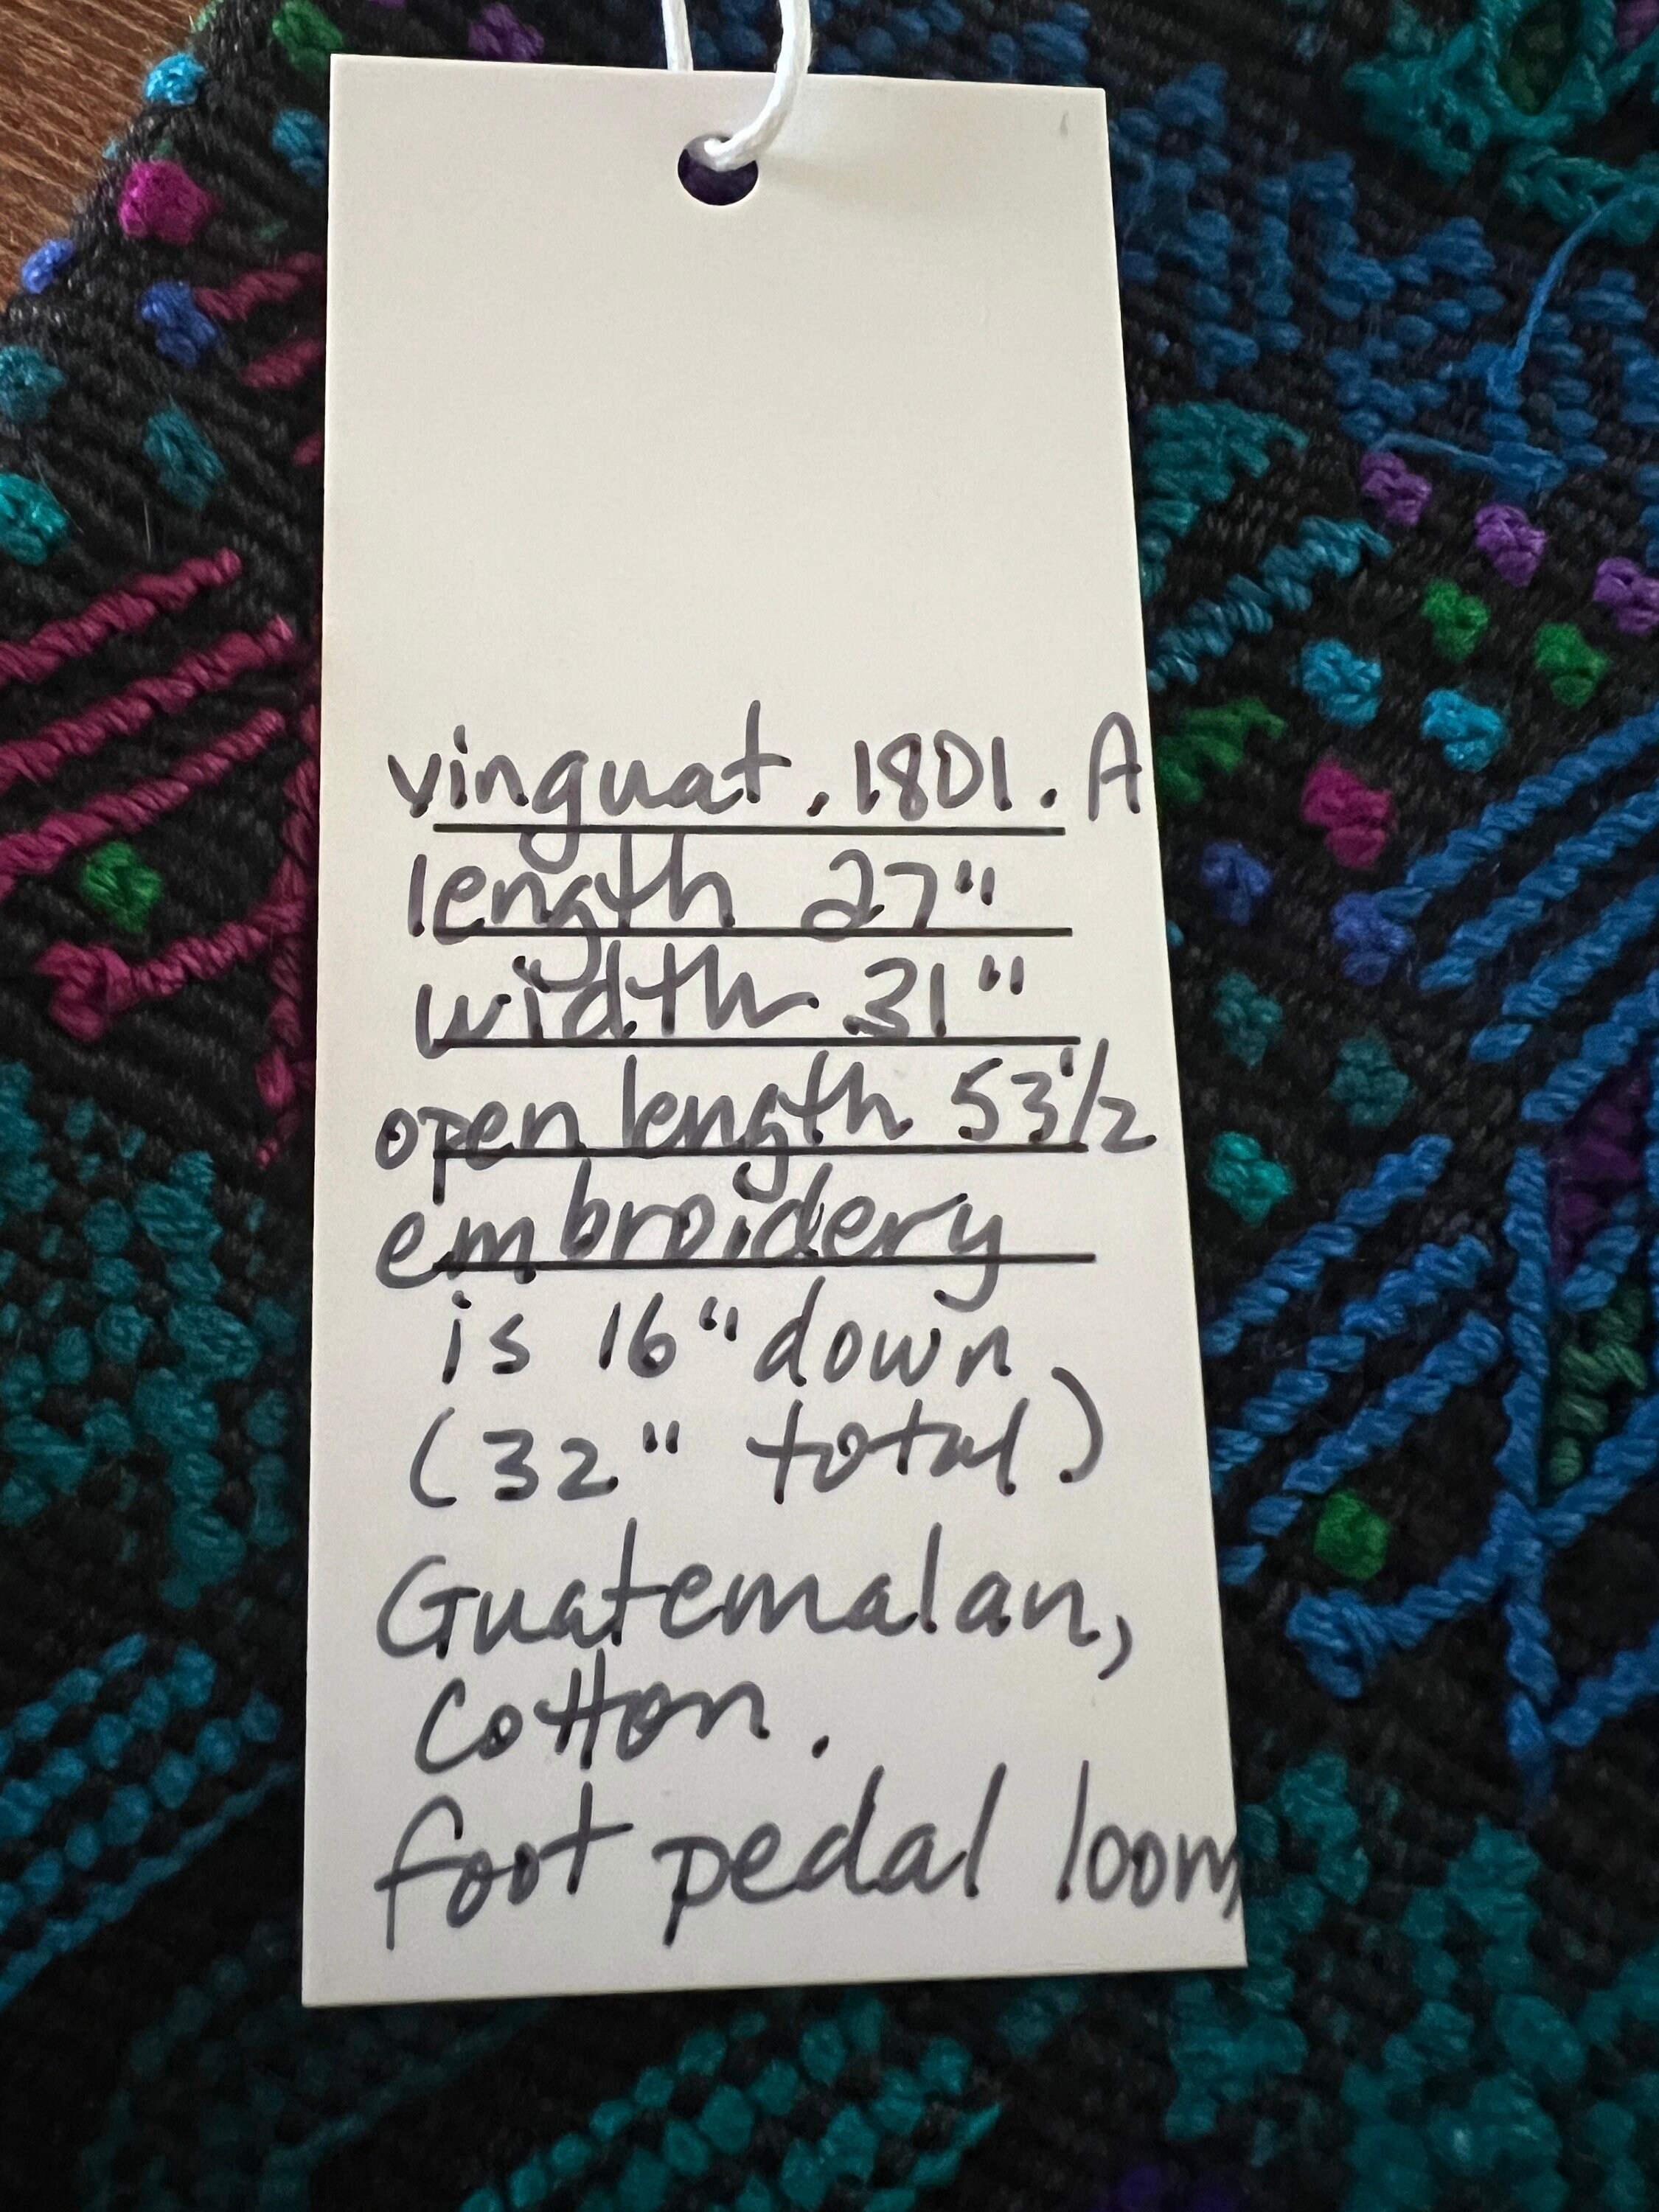 vinguat.1801.A
length 27"
width 31"
open length 53 1/2
embroidery
is 16" down
(32" total)
Guatemalan,
Cotton.
foot pedal loom